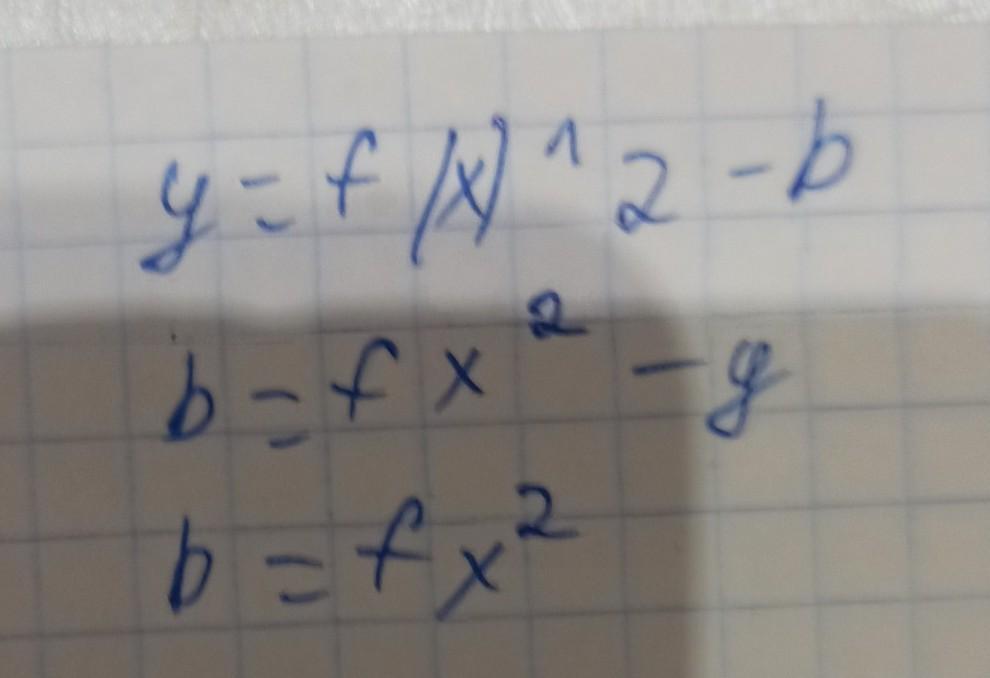 y = f(x)^2 - b
b = fx² - y
b = fx²